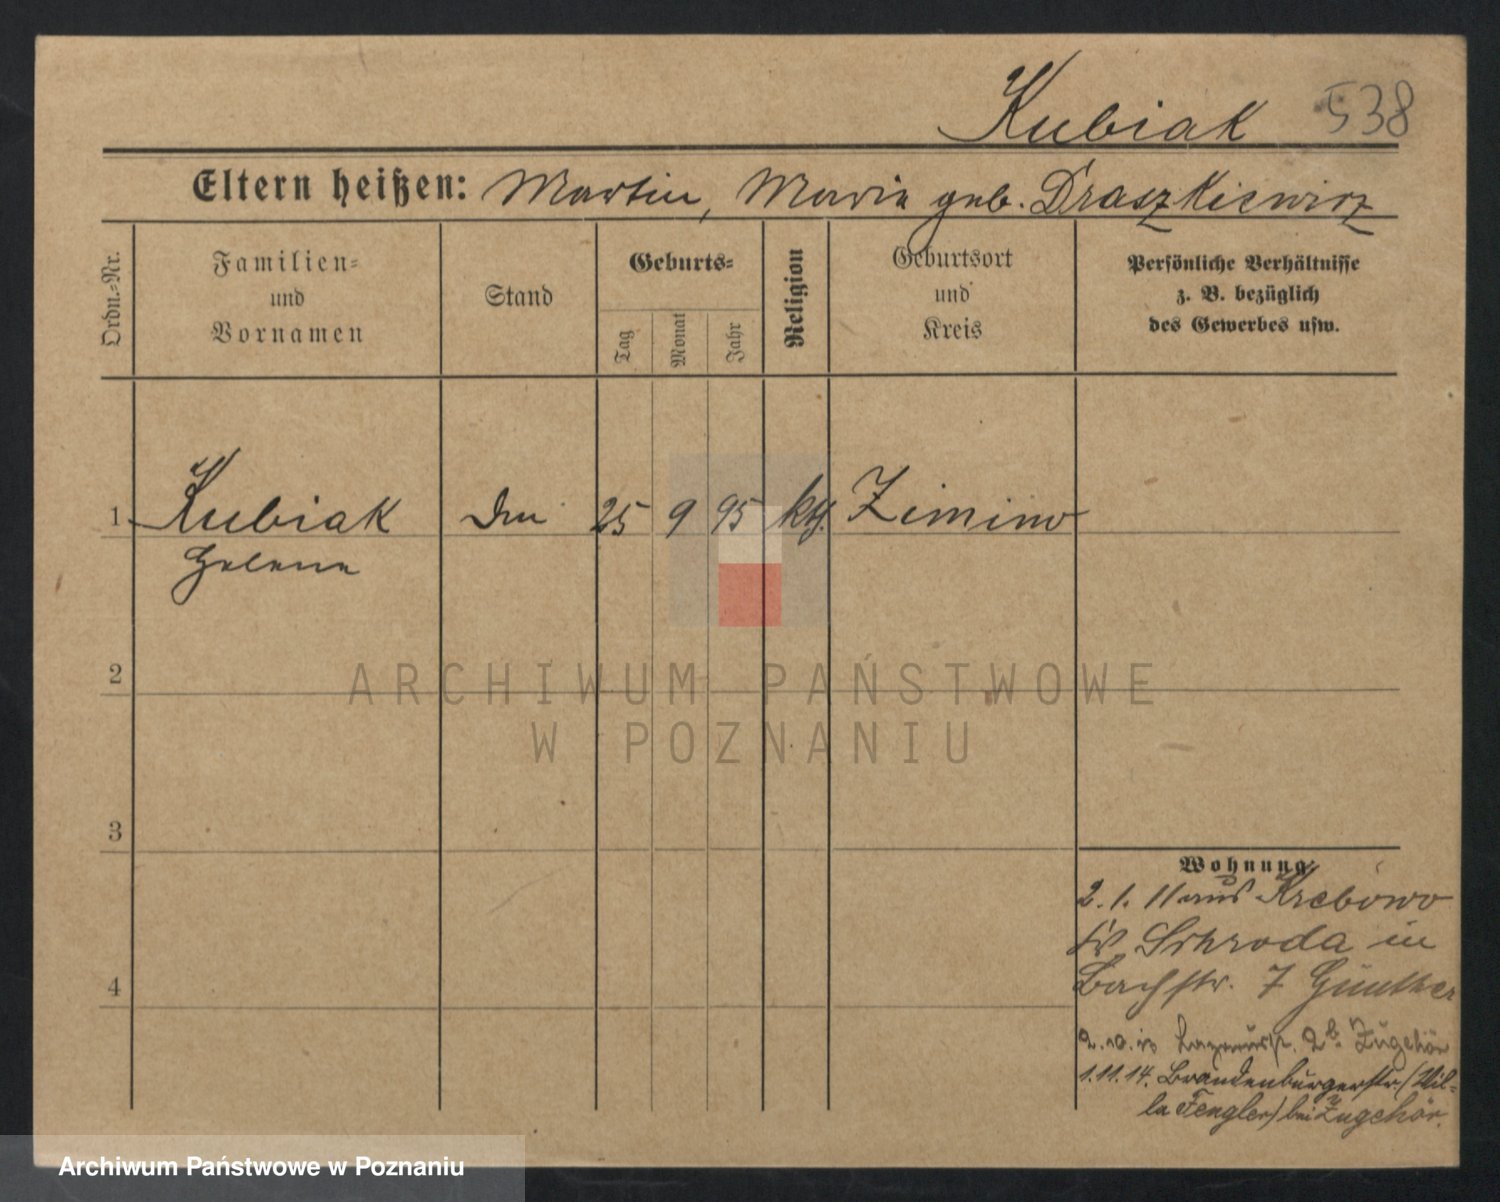 Kubiak 538
Eltern heißen: Martin, Marie geb. Draszkiewicz
Ordn.-Nr.
Familien-
und
Vornamen
Stand
Geburts-
Tag
Monat
Jahr
Religion
Geburtsort
und
Kreis
Persönliche Verhältnisse
z. B. bezüglich
des Gewerbes usw.
1 Kubiak 25 9 95 kth. Zimino
Helene
2
ARCHIWUM PAŃSTWOWE
W POZNANIU
3
Wohnung
2. 1. 11 aus Krebowo
Kr Schroda in
Bachstr. 7 Günther
Zugehör
1.11.14. Brandenburgerstr. (Vil-
la Fengler) bei Zugehör.
4
Archiwum Państwowe w Poznaniu